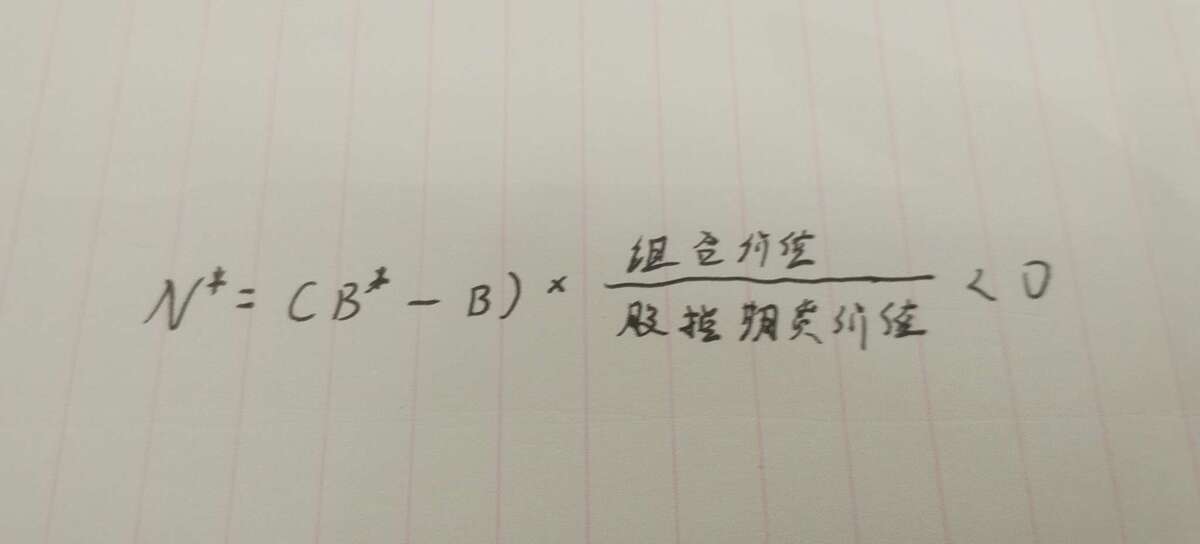 N* = (B* - B) × 组合价值 / 股指期货价值 < 0